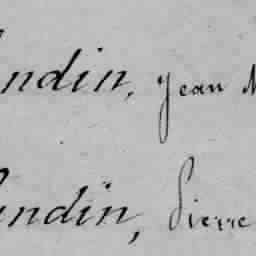 ndin, Jean
ndin, Pierre